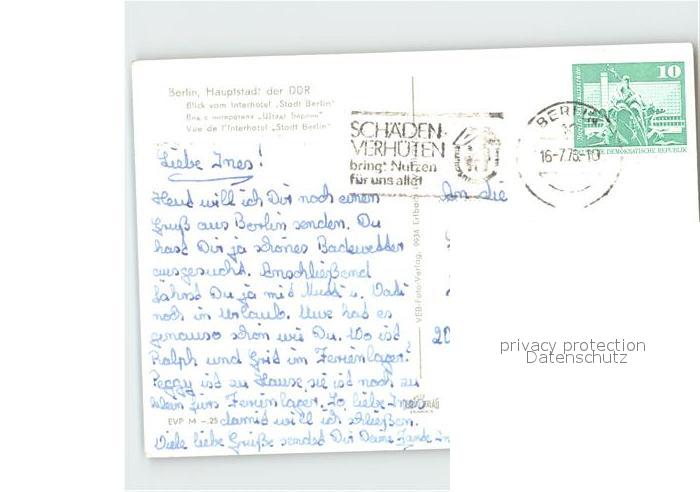 Berlin, Hauptstadt der DDR
Blick vom Interhotel „Stadt Berlin"
Вид с интеротеля „Штадт Берлин"
Vue de l'Interhotel „Stadt Berlin"
SCHÄDEN-
VERHÜTEN
bringt Nutzen
für uns alle!
BERLIN
16-7.75.-10
10
DEUTSCHE DEMOKRATISCHE REPUBLIK
Liebe Ines!
Heut will ich Dir noch einen
Gruß aus Berlin senden. Du
hast Dir ja schönes Badewetter
ausgesucht. Anschließend
fährst Du ja mit Mutti u. Vati
noch in Urlaub. Uwe hat es
genauso schön wie Du. Wo ist
Ralph und Grit im Ferienlager?
Peggy ist zu Hause, sie ist noch zu
klein fürs Ferienlager. So, liebe Ines
damit will ich schließen.
Viele liebe Grüße sendet Dir Deine Tande In
An die
20
VEB-Foto-Verlag, 9934 Erlbach
EVP M -.25
privacy protection
Datenschutz